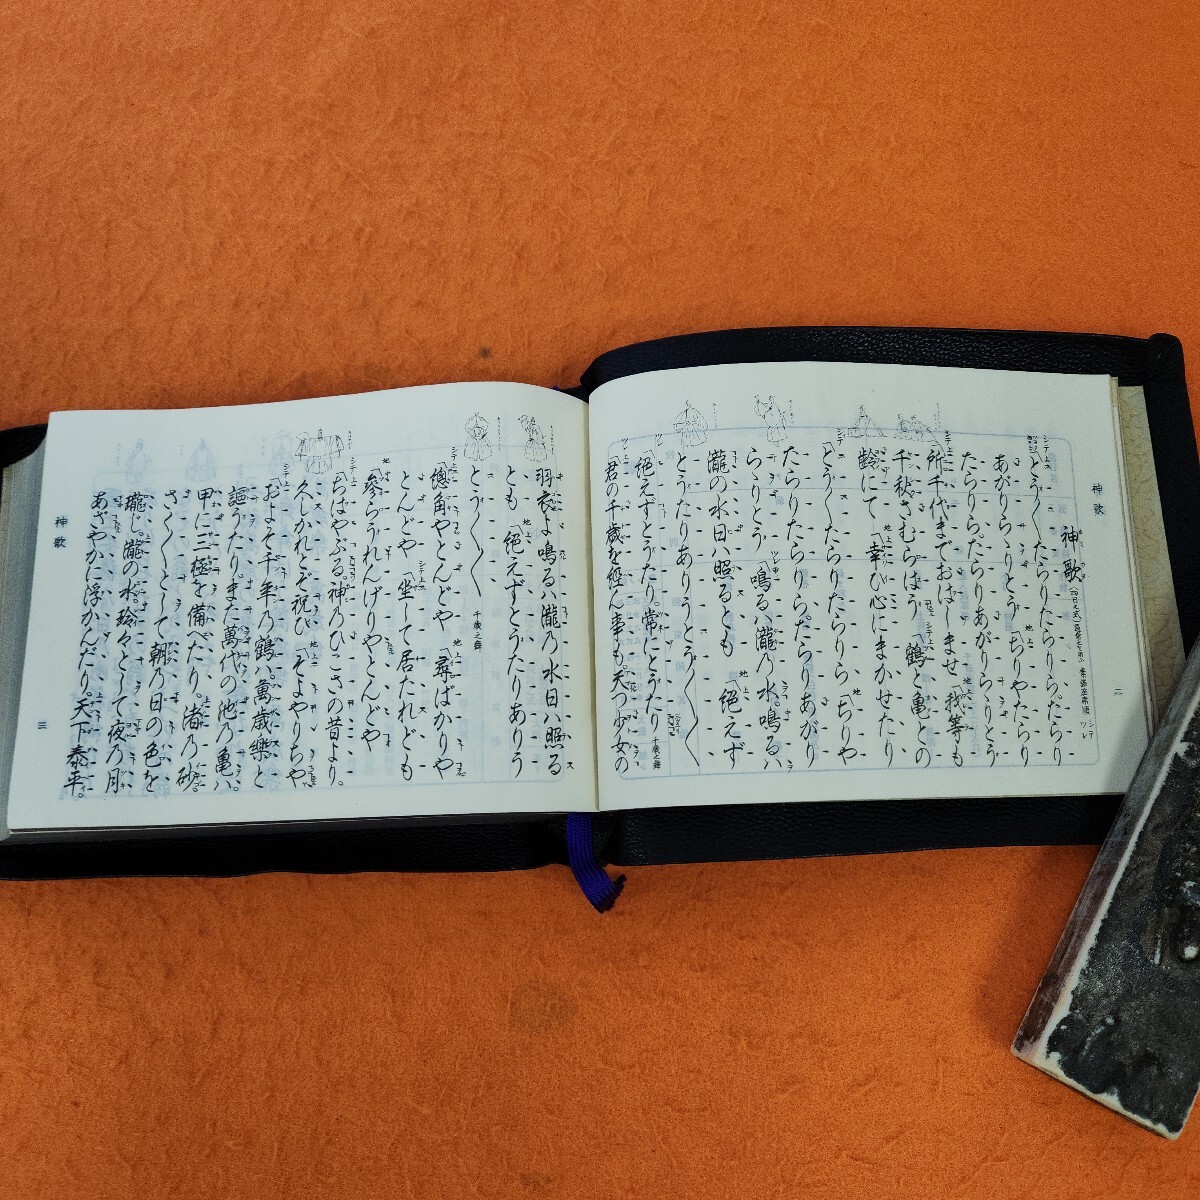 神歌
二
神歌
とう〳〵たらりたらりら。たらり
あがりらゝりとう 地上「ちりやたらり
たらりら。たらりあがりらゝりとう
シテ上「所千代までおはしませ 地上「我等も
千秋さむらはう シテ上「鶴と亀との
齢にて 地上「幸ひ心にまかせたり
シテ「どう〳〵たらりたらりら 地「ちりや
たらりたらりら。たらりあがり
らゝりとう ツレ上「鳴るハ瀧乃水。鳴るハ
瀧の水日ハ照るとも 地上「絶えず
とうたりありうとう〳〵〳〵
ツレ「絶えずとうたり。常にとうたり 千歳之舞
ツレ上「君の千歳を經ん事も。天つ少女の
羽衣よ鳴るハ瀧乃水日ハ照る
とも 地上「絶えずとうたりありう
とう〳〵〳〵 千歳之舞
シテ上「總角やとんどや 地上「尋ばかりや
とんどや シテ上「坐して居たれども
地上「參らうれんげりやとんどや
シテ上「ちはやぶる。神乃ひこさの昔より。
久しかれとぞ祝ひ 地上「そよやりちや
シテ上「およそ千年乃鶴。萬歳樂と
謳うたり。また萬代の池乃亀ハ
甲に三極を備へたり。渚乃砂。
さく〳〵として朝乃日の色を
瓏じ。瀧の水。玲々として夜乃月
あざやかに浮かんだり。天下泰平。
神歌
三